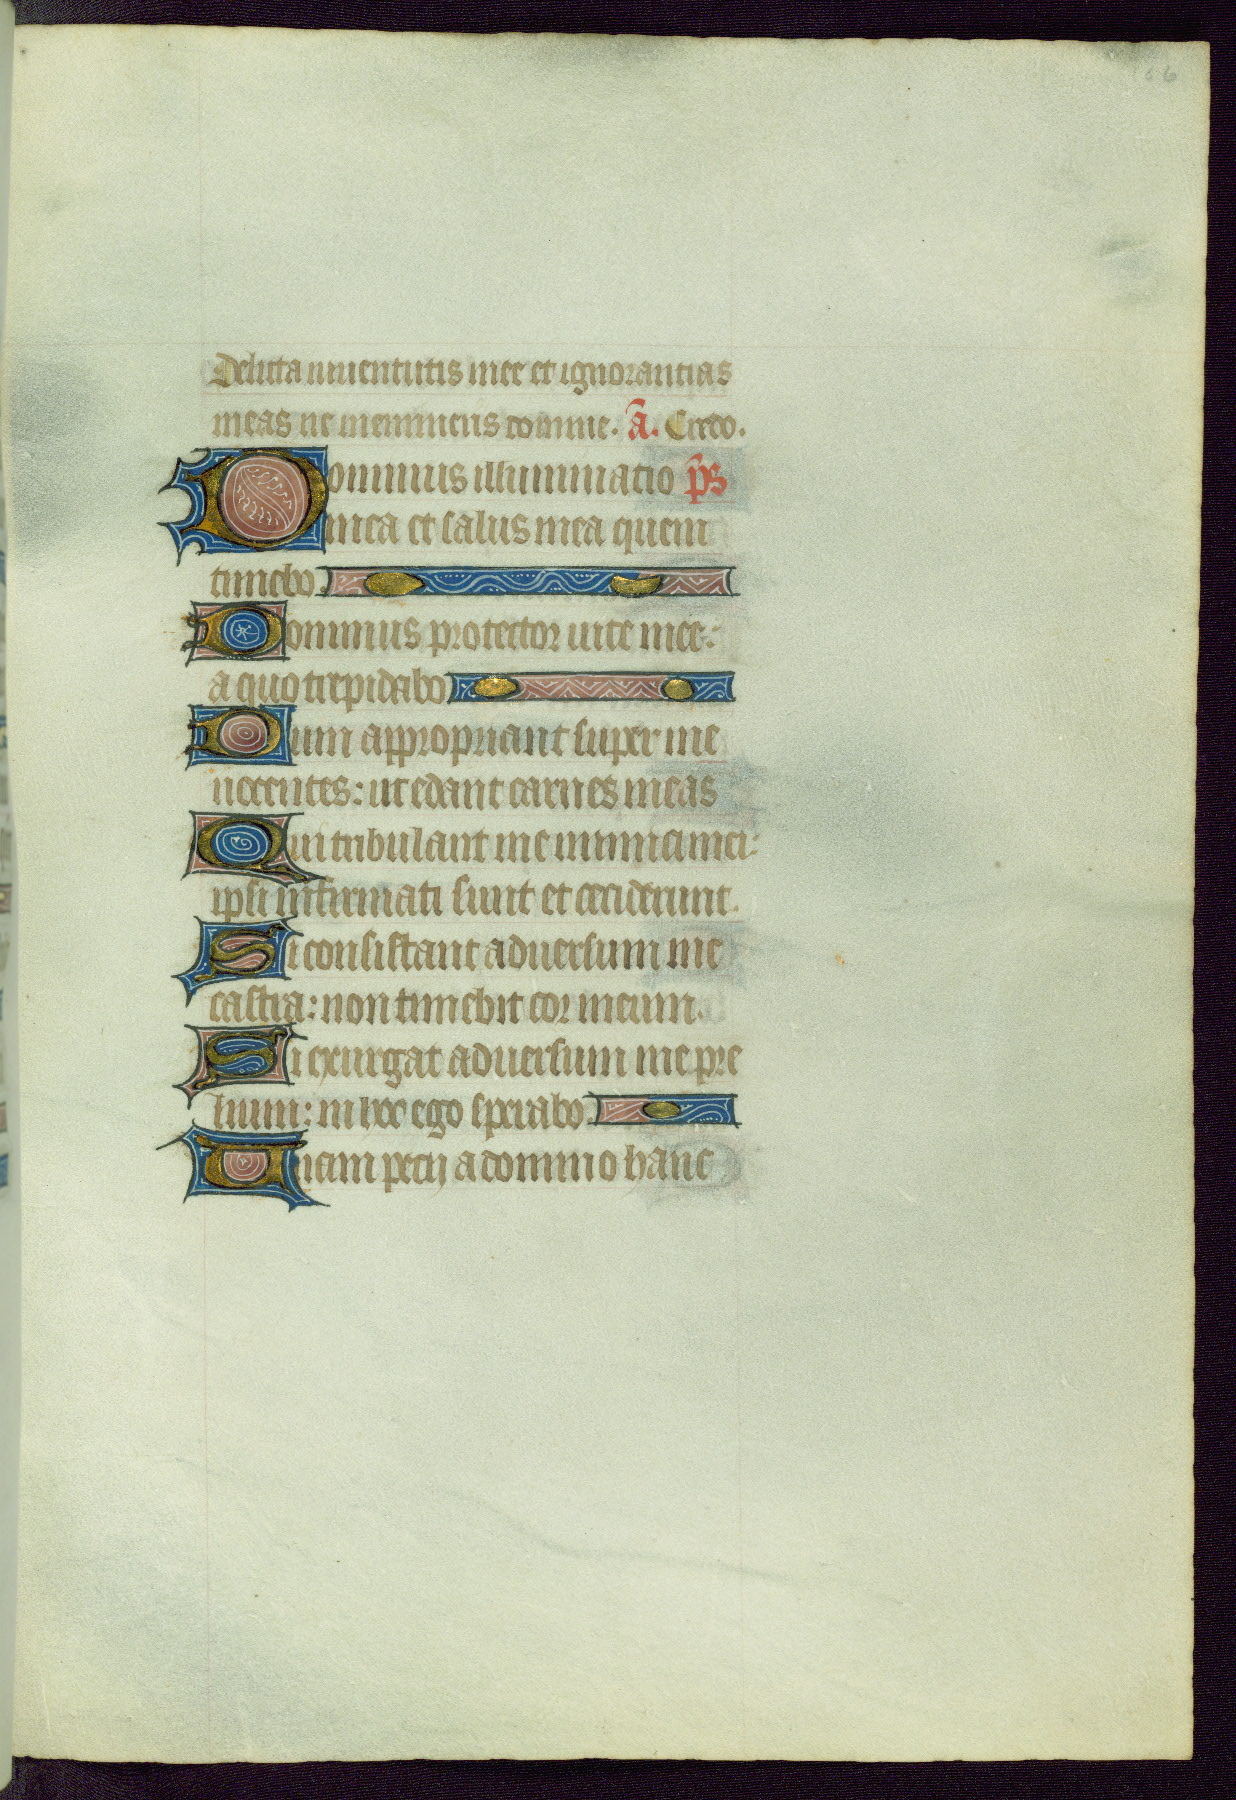 Delicta iuuentutis mee et ignorantias
meas ne memineris domine. A. Credo.
Dominus illuminatio ps
mea et salus mea quem
timebo.
Dominus protector uite mee:
a quo trepidabo
Dum appropriant super me
nocentes: ut edant carnes meas
Qui tribulant me inimici mei:
ipsi infirmati sunt et ceciderunt.
Si consistant aduersum me
castra: non timebit cor meum.
Si exurgat aduersum me pre
lium: in hoc ego sperabo.
Unam pecij a domino hanc